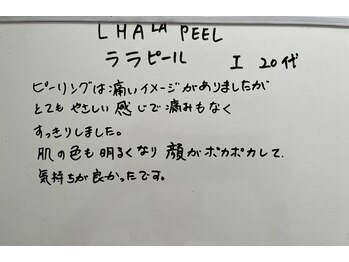 LHALA PEEL
ララピール　I 20代
ピーリングは痛いイメージがありましたが
とても やさしい 感じで痛みもなく
すっきりしました。
肌の色も明るくなり 顔がポカポカして
気持ちが良かったです。